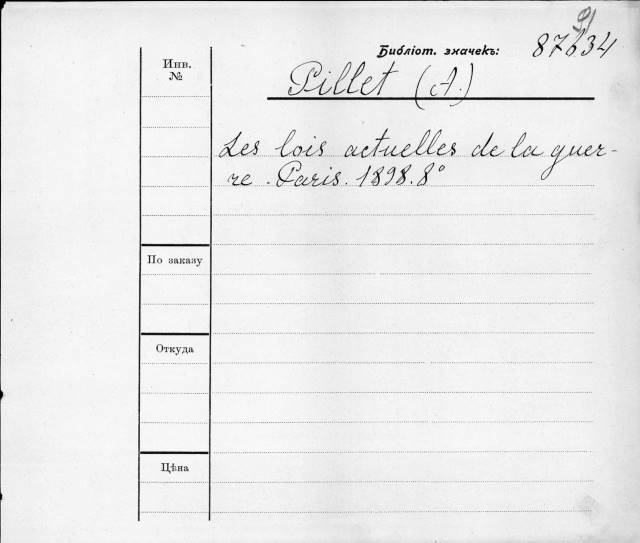 Библіот. значекъ: 87634
Инв.
№
Pillet (A.)
Les lois actuelles de la guer-
re. Paris. 1898. 8°
По заказу
Откуда
Цѣна